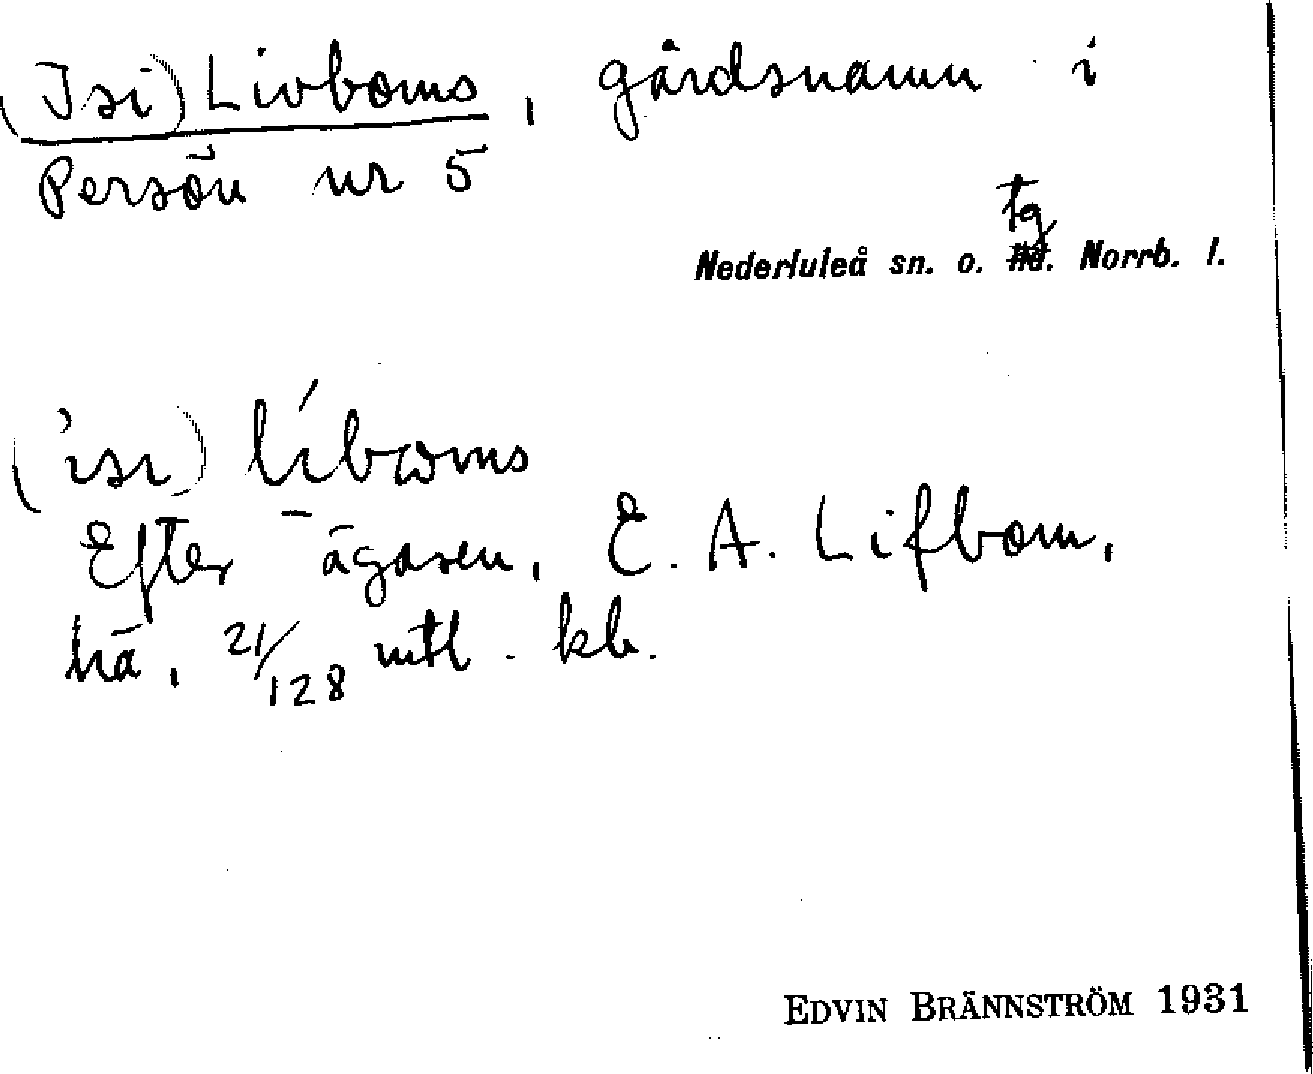 (Isi) Livboms, gårdsnamn i
Persön nr 5
tg
Nederluleå sn. o. Norrb. l.
('isi) líboms
Efter ägaren, E. A. Lifbom,
hä, 21/128 mtl. kb.
EDVIN BRÄNNSTRÖM 1931